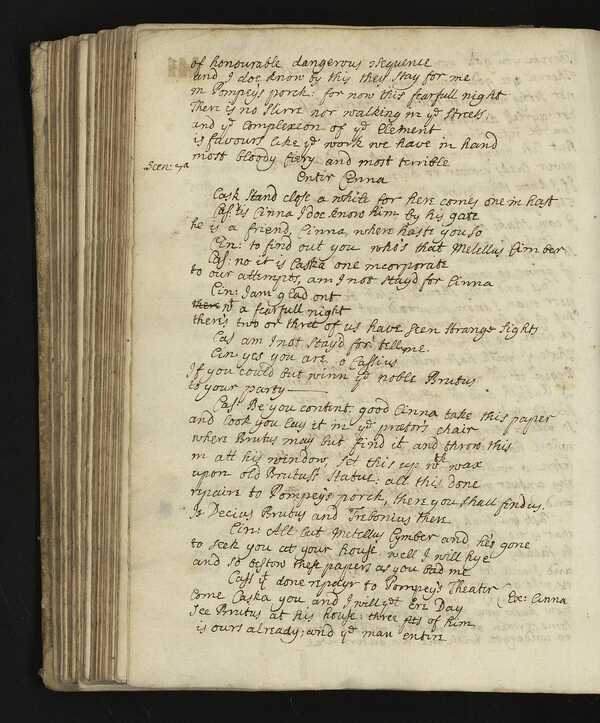 of honourable dangerous sequence
and I doe know by this they stay for me
in Pompeys porch: for now this fearfull night
There is no stirre nor walking in ye streets.
and ye complexion of ye Element
is favours like ye work we have in hand
most bloody fiery and most terrible
Scen: 7a
Enter Cinna
Cask Stand close a while for here comes one in hast
Cas: tis Cinna I doe know him by his gate
he is a friend, Cinna, where haste you so
Cin: to find out you who's that Metellus Cimber
Cas: no it is Caska one incorporate
to our attempts, am I not stayd for Cinna
Cin: I am glad ont
there wt a fearfull night
there's two or three of us have seen strange sights
Cas am I not stayd for tell me.
Cin yes you are. o Cassius
If you could but winn ye noble Brutus
to your party
Cas: Be you content, good Cinna take this paper
and look you lay it in ye prætors chair
where Brutus may but find it and throw this
in att his window, set this up wth wax
upon old Brutus's statue: all this done
repaire to Pompey's porch, there you shall find us.
Is Decius Brutus and Trebonius there
Cin: All but Metellus Cymber and he's gone
to seek you at your house, well I will hye
and so bestow these papers as you bad me
Cass if done repayr to Pompeys Theater
Exe: Cinna
Come Caska you and I will yet Ere Day
See Brutus at his house: three pts of him
is ours already; and ye man entire